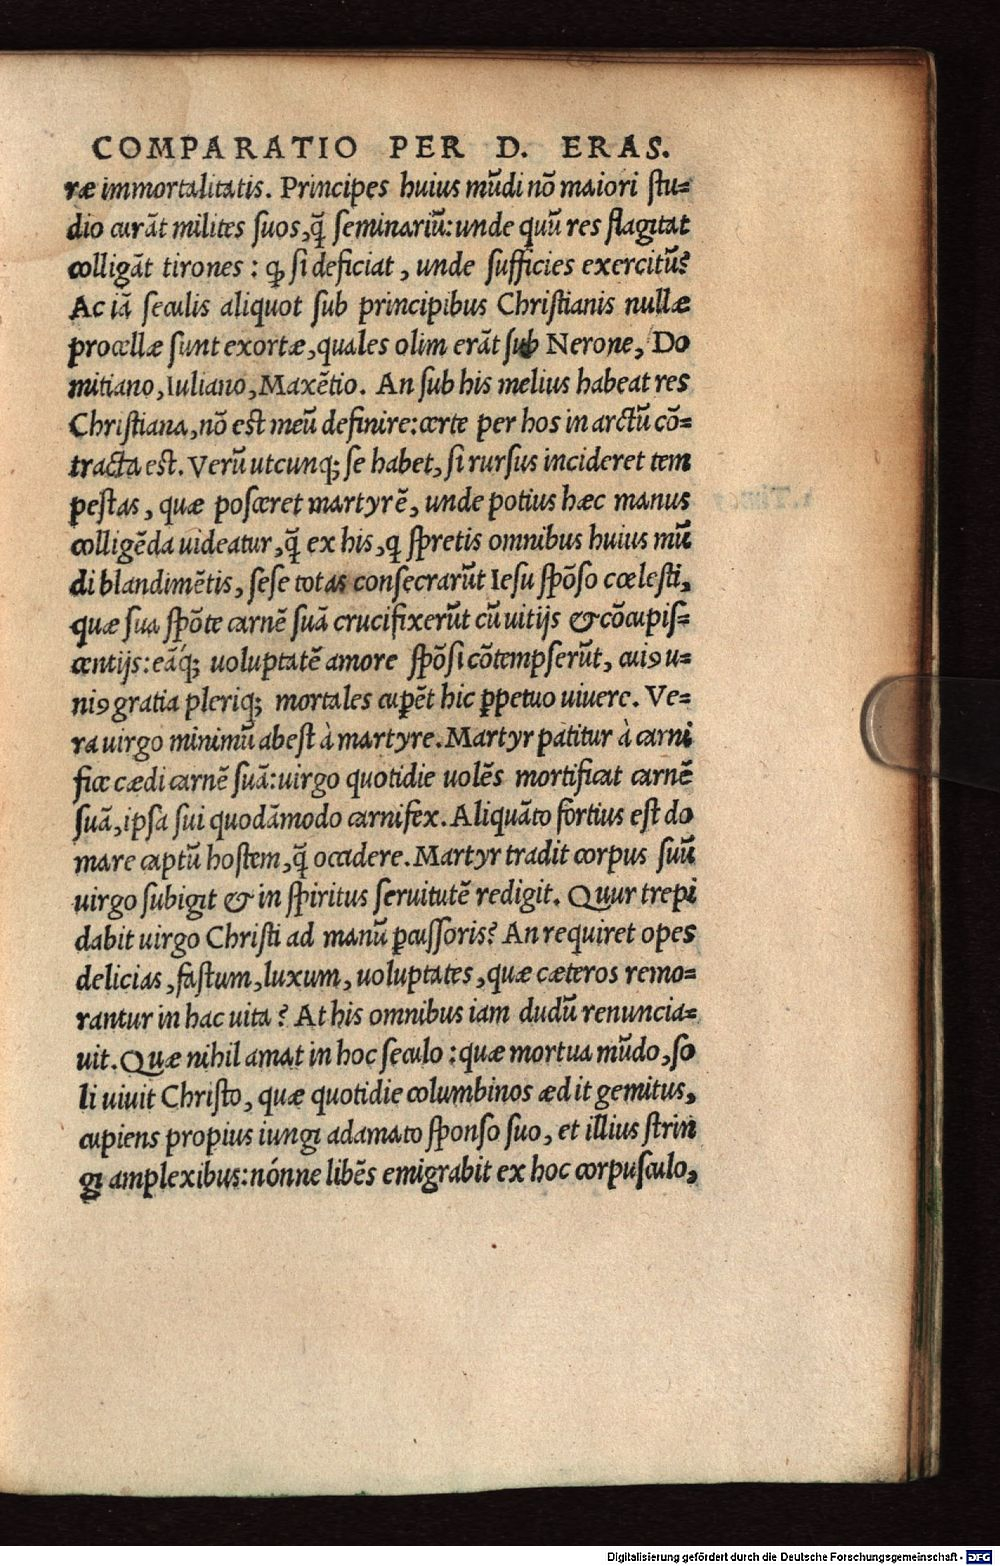 COMPARATIO PER D. ERAS.
ræ immortalitatis. Principes huius mũdi nõ maiori ſtu=
dio curãt milites ſuos, q̃ ſeminariũ: unde quũ res flagitat
colligãt tirones: q̃ ſi deficiat, unde ſufficies exercitũ?
Ac iã ſeculis aliquot ſub principibus Chriſtianis nullæ
procellæ ſunt exortæ, quales olim erãt ſub Nerone, Do
mitiano, Iuliano, Maxẽtio. An ſub his melius habeat res
Chriſtiana, nõ est meũ definire: certe per hos in arctũ cõ=
tracta est. Verũ utcunq; ſe habet, ſi rurſus incideret tem
pestas, quæ poſceret martyrẽ, unde potius hæc manus
colligẽda uideatur, q̃ ex his, q ſpretis omnibus huius mũ
di blandimẽtis, ſeſe totas conſecrarũt Ieſu ſpõſo cœleſti,
quæ ſua ſpõte carnẽ ſuã crucifixerũt cũ uitijs & cõcupiſ=
centijs: eãq́; uoluptatẽ amore ſpõſi cõtempſerũt, cuiꝰ u=
niꝰ gratia pleriq; mortales cupẽt hic ꝑpetuo uiuere. Ve=
ra uirgo minimũ abeſt à martyre. Martyr patitur à carni
fice cædi carnẽ ſuã: uirgo quotidie uolẽs mortificat carnẽ
ſuã, ipſa ſui quodãmodo carnifex. Aliquãto fortius eſt do
mare captũ hoſtem, q̃ occidere. Martyr tradit corpus ſuũ
uirgo ſubigit & in ſpiritus ſeruitutẽ redigit. Quur trepi
dabit uirgo Chriſti ad manũ ꝑcuſſoris? An requiret opes
delicias, faſtum, luxum, uoluptates, quæ cæteros remo=
rantur in hac uita? At his omnibus iam dudũ renuncia=
uit. Quæ nihil amat in hoc ſeculo: quæ mortua mũdo, ſo
li uiuit Chriſto, quæ quotidie columbinos ædit gemitus,
cupiens propius iungi adamato ſponſo ſuo, et illius ſtrin
gi amplexibus: nónne libẽs emigrabit ex hoc corpuſculo,
Digitalisierung gefördert durch die Deutsche Forschungsgemeinschaft - DFG